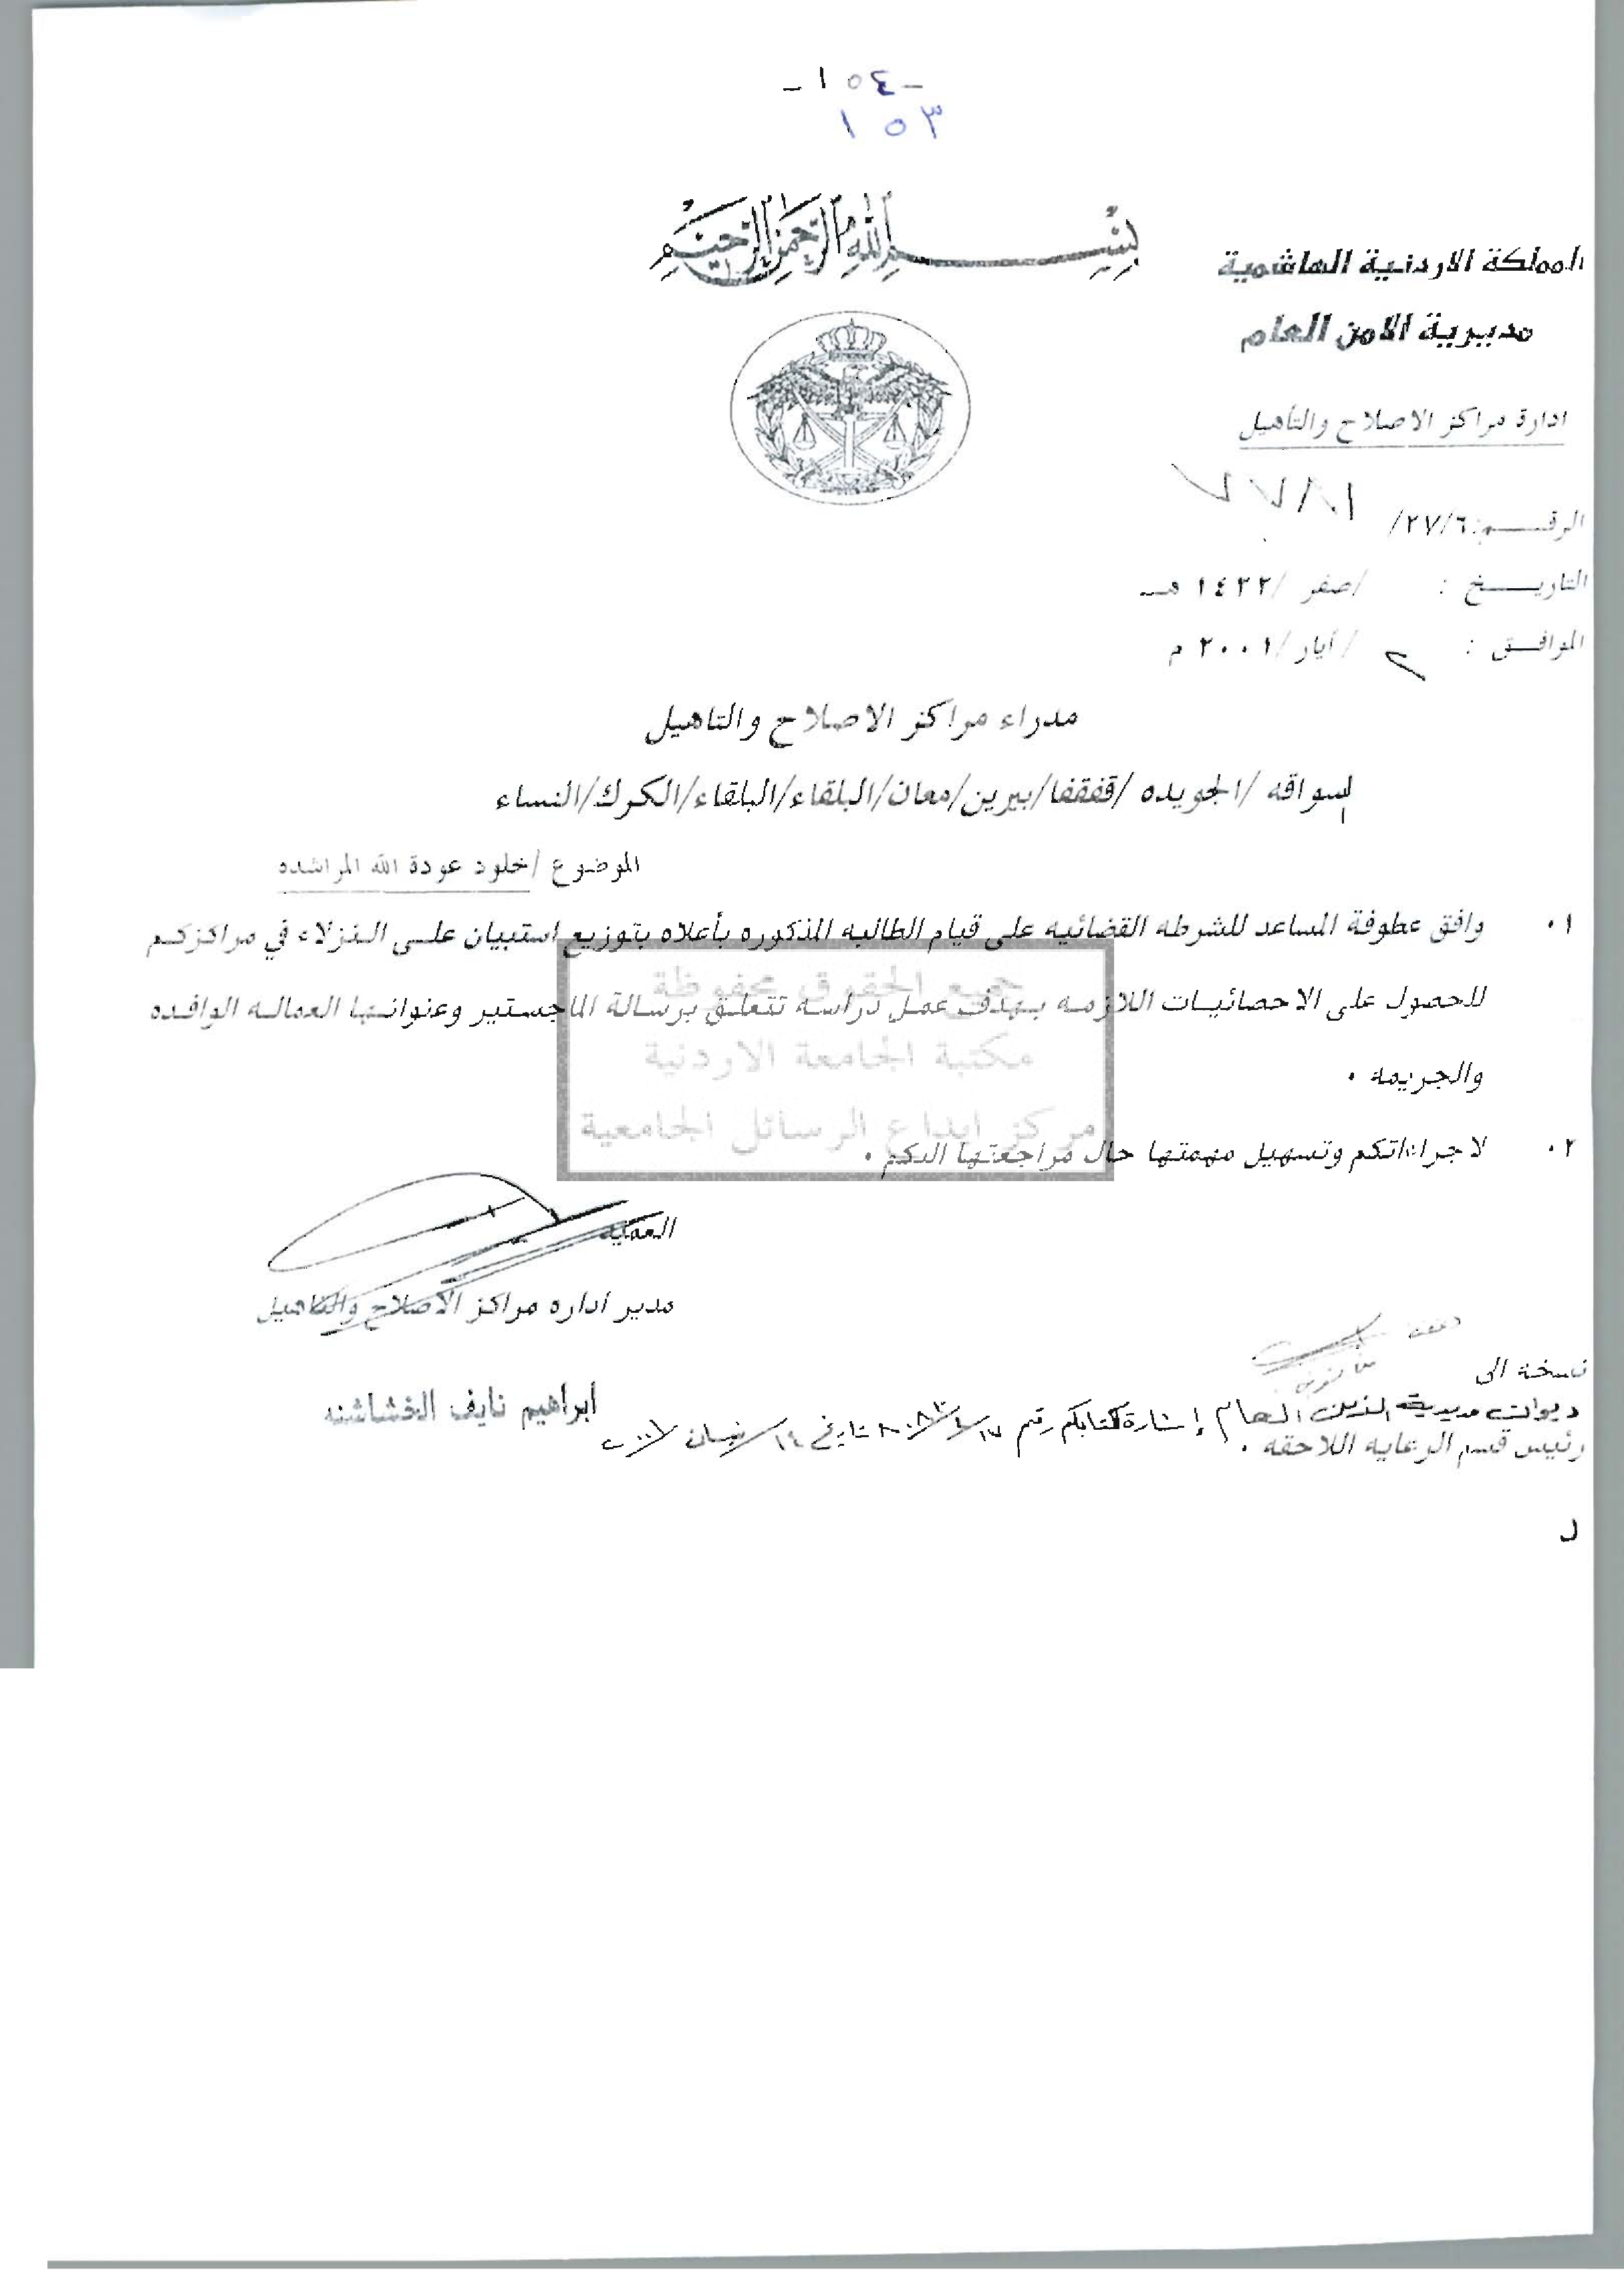 -١٥٤-
١٥٣
بسم الله الرحمن الرحيم
المملكة الاردنية الهاشمية
مديرية الامن العام
ادارة مراكز الاصلاح والتأهيل
الرقــــم:٢٧/٦/
التاريــــخ : /صفر /١٤٢٢ هــ
الموافــق : ٢ /أيار/٢٠٠١ م
مدراء مراكز الاصلاح والتاهيل
سواقه /الجويده /قفقفا/بيرين/معان/البلقاء/البلقاء/الكرك/النساء
الموضوع /خلود عودة الله المراشده
٠١ وافق عطوفة المساعد للشرطه القضائيه على قيام الطالبه المذكوره بأعلاه بتوزيع استبيان علـى الـنزلاء في مراكزكـم
للحصول على الاحصائيـات اللازمـه بـهدف عمـل دراسـه تتعلـق برسـالة الماجسـتير وعنوانـها العمالـه الوافـده
والجريمه ٠
٠٢ لاجراءاتكم وتسهيل مهمتها حال مراجعتها اليكم ٠
جميع الحقوق محفوظة
مكتبة الجامعة الاردنية
مركز ايداع الرسائل الجامعية
العقيد
مدير اداره مراكز الاصلاح والتاهيل
ابراهيم نايف الخشاشنه
نسخة الى
ديوان مديرية الامن العام إشارة لكتابكم رقم تاريخ ١٤/نيسان/٢٠٠١
رئيس قسم الرعايه اللاحقه ٠